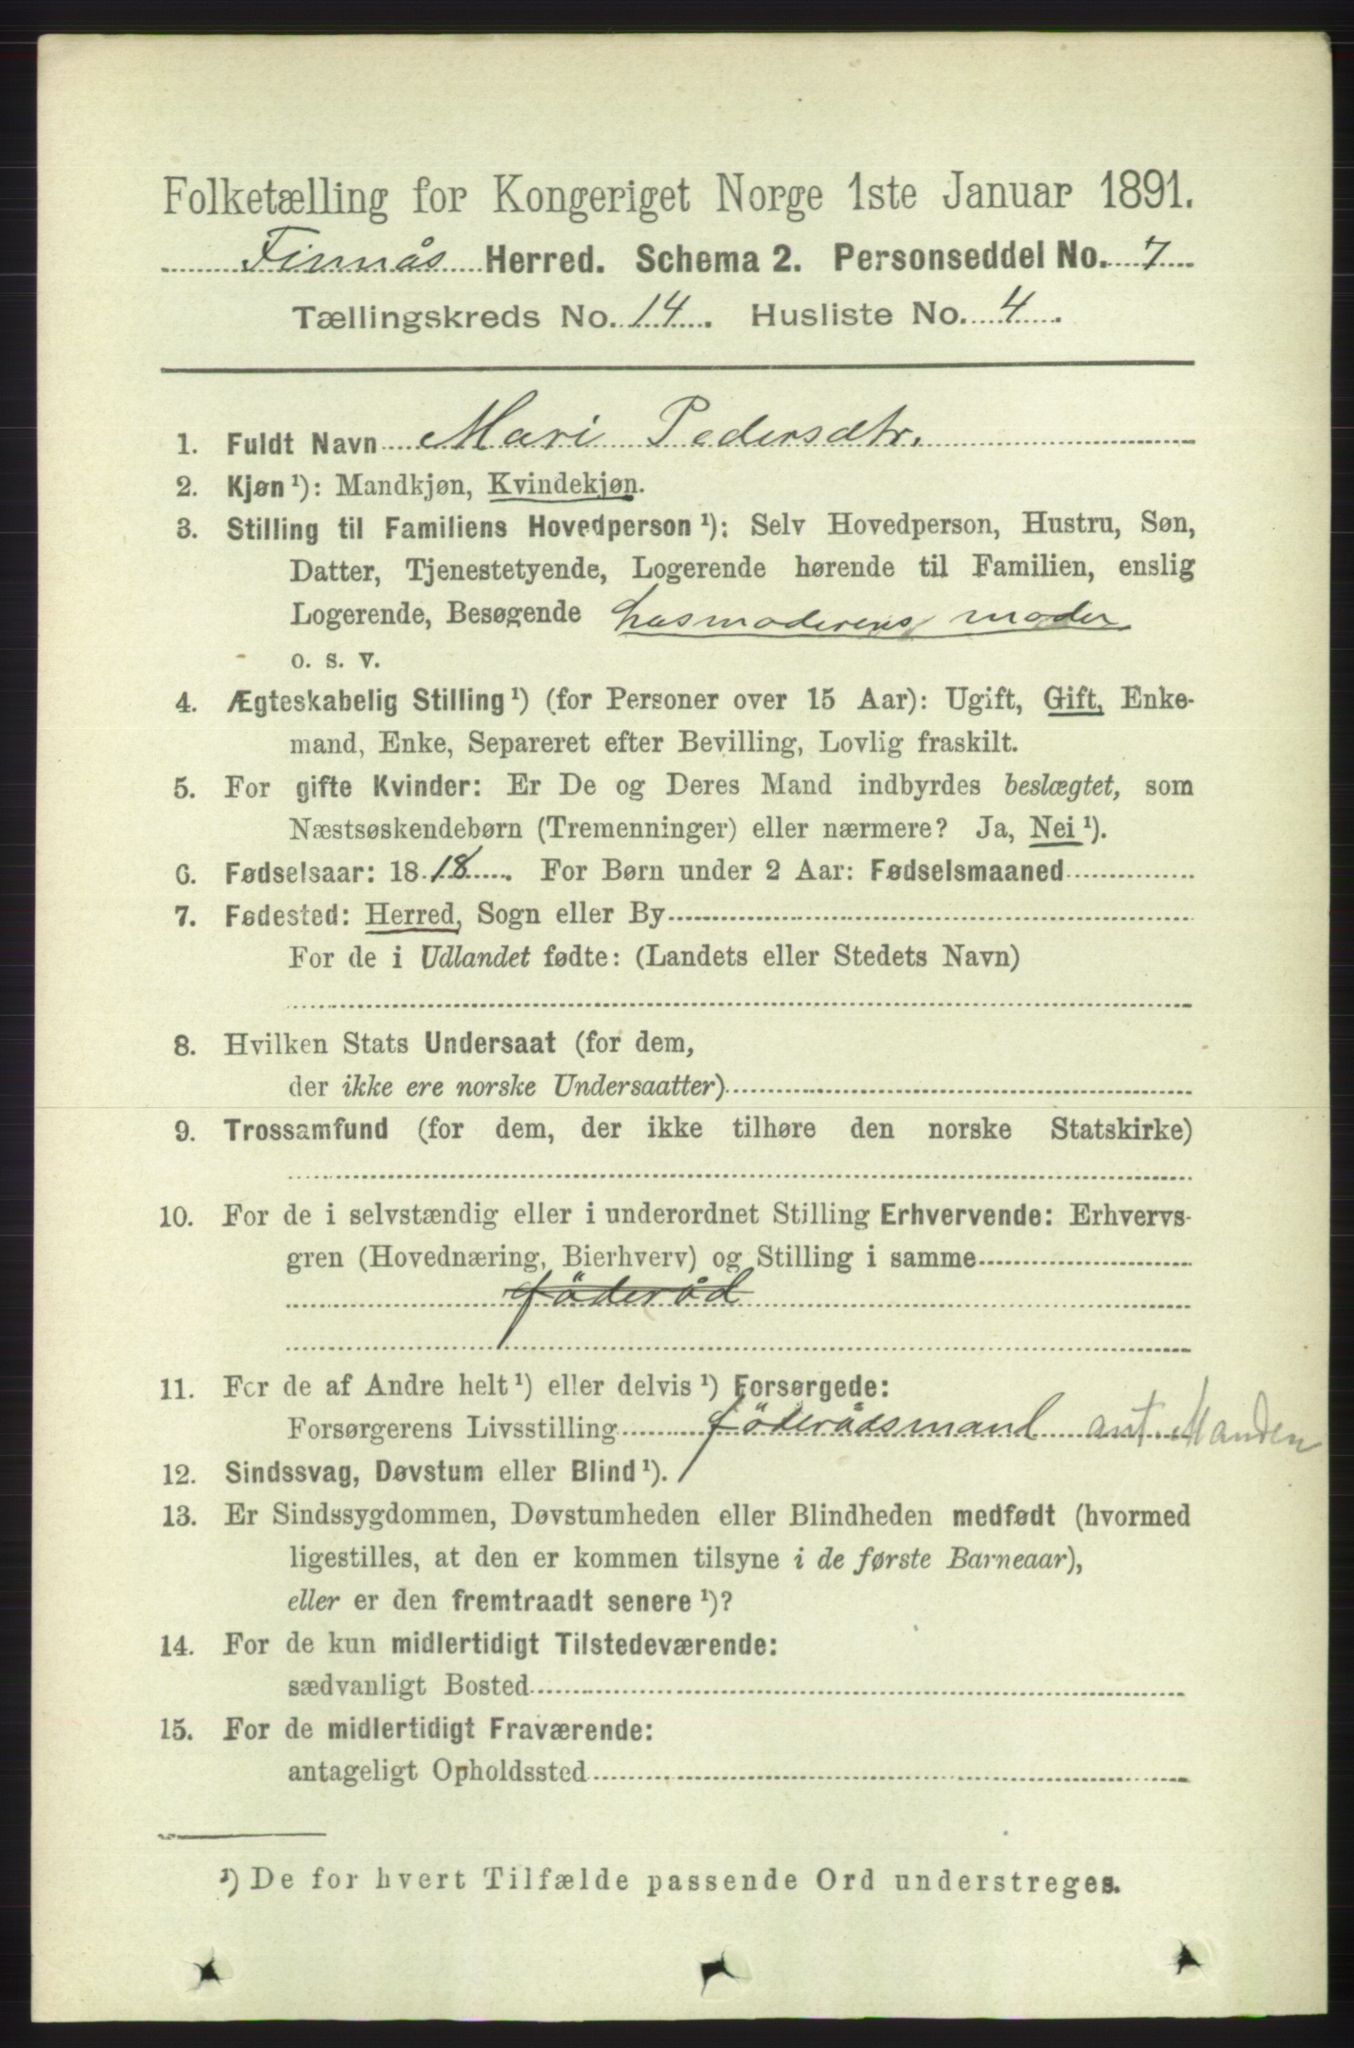 Folketælling for Kongeriget Norge 1ste Januar 1891.
Finnås Herred. Schema 2. Personseddel No. 7
Tællingskreds No. 14. Husliste No. 4.
1. Fuldt Navn Mari Pedersdtr.
2. Kjøn ¹): Mandkjøn, Kvindekjøn.
3. Stilling til Familiens Hovedperson ¹): Selv Hovedperson, Hustru, Søn,
Datter, Tjenestetyende, Logerende hørende til Familien, enslig
Logerende, Besøgende husmoderens moder
o. s. v.
4. Ægteskabelig Stilling ¹) (for Personer over 15 Aar): Ugift, Gift, Enke-
mand, Enke, Separeret efter Bevilling, Lovlig fraskilt.
5. For gifte Kvinder: Er De og Deres Mand indbyrdes beslægtet, som
Næstsøskendebørn (Tremenninger) eller nærmere? Ja, Nei ¹).
6. Fødselsaar: 1818. For Børn under 2 Aar: Fødselsmaaned
7. Fødested: Herred, Sogn eller By
For de i Udlandet fødte: (Landets eller Stedets Navn)
8. Hvilken Stats Undersaat (for dem,
der ikke ere norske Undersaatter)
9. Trossamfund (for dem, der ikke tilhøre den norske Statskirke)
10. For de i selvstændig eller i underordnet Stilling Erhvervende: Erhvervs-
gren (Hovednæring, Bierhverv) og Stilling i samme
föderåd
11. For de af Andre helt ¹) eller delvis ¹) Forsørgede:
Forsørgerens Livsstilling föderådsmand ant. Manden
12. Sindssvag, Døvstum eller Blind ¹).
13. Er Sindssygdommen, Døvstumheden eller Blindheden medfødt (hvormed
ligestilles, at den er kommen tilsyne i de første Barneaar),
eller er den fremtraadt senere ¹)?
14. For de kun midlertidigt Tilstedeværende:
sædvanligt Bosted
15. For de midlertidigt Fraværende:
antageligt Opholdssted
¹) De for hvert Tilfælde passende Ord understreges.